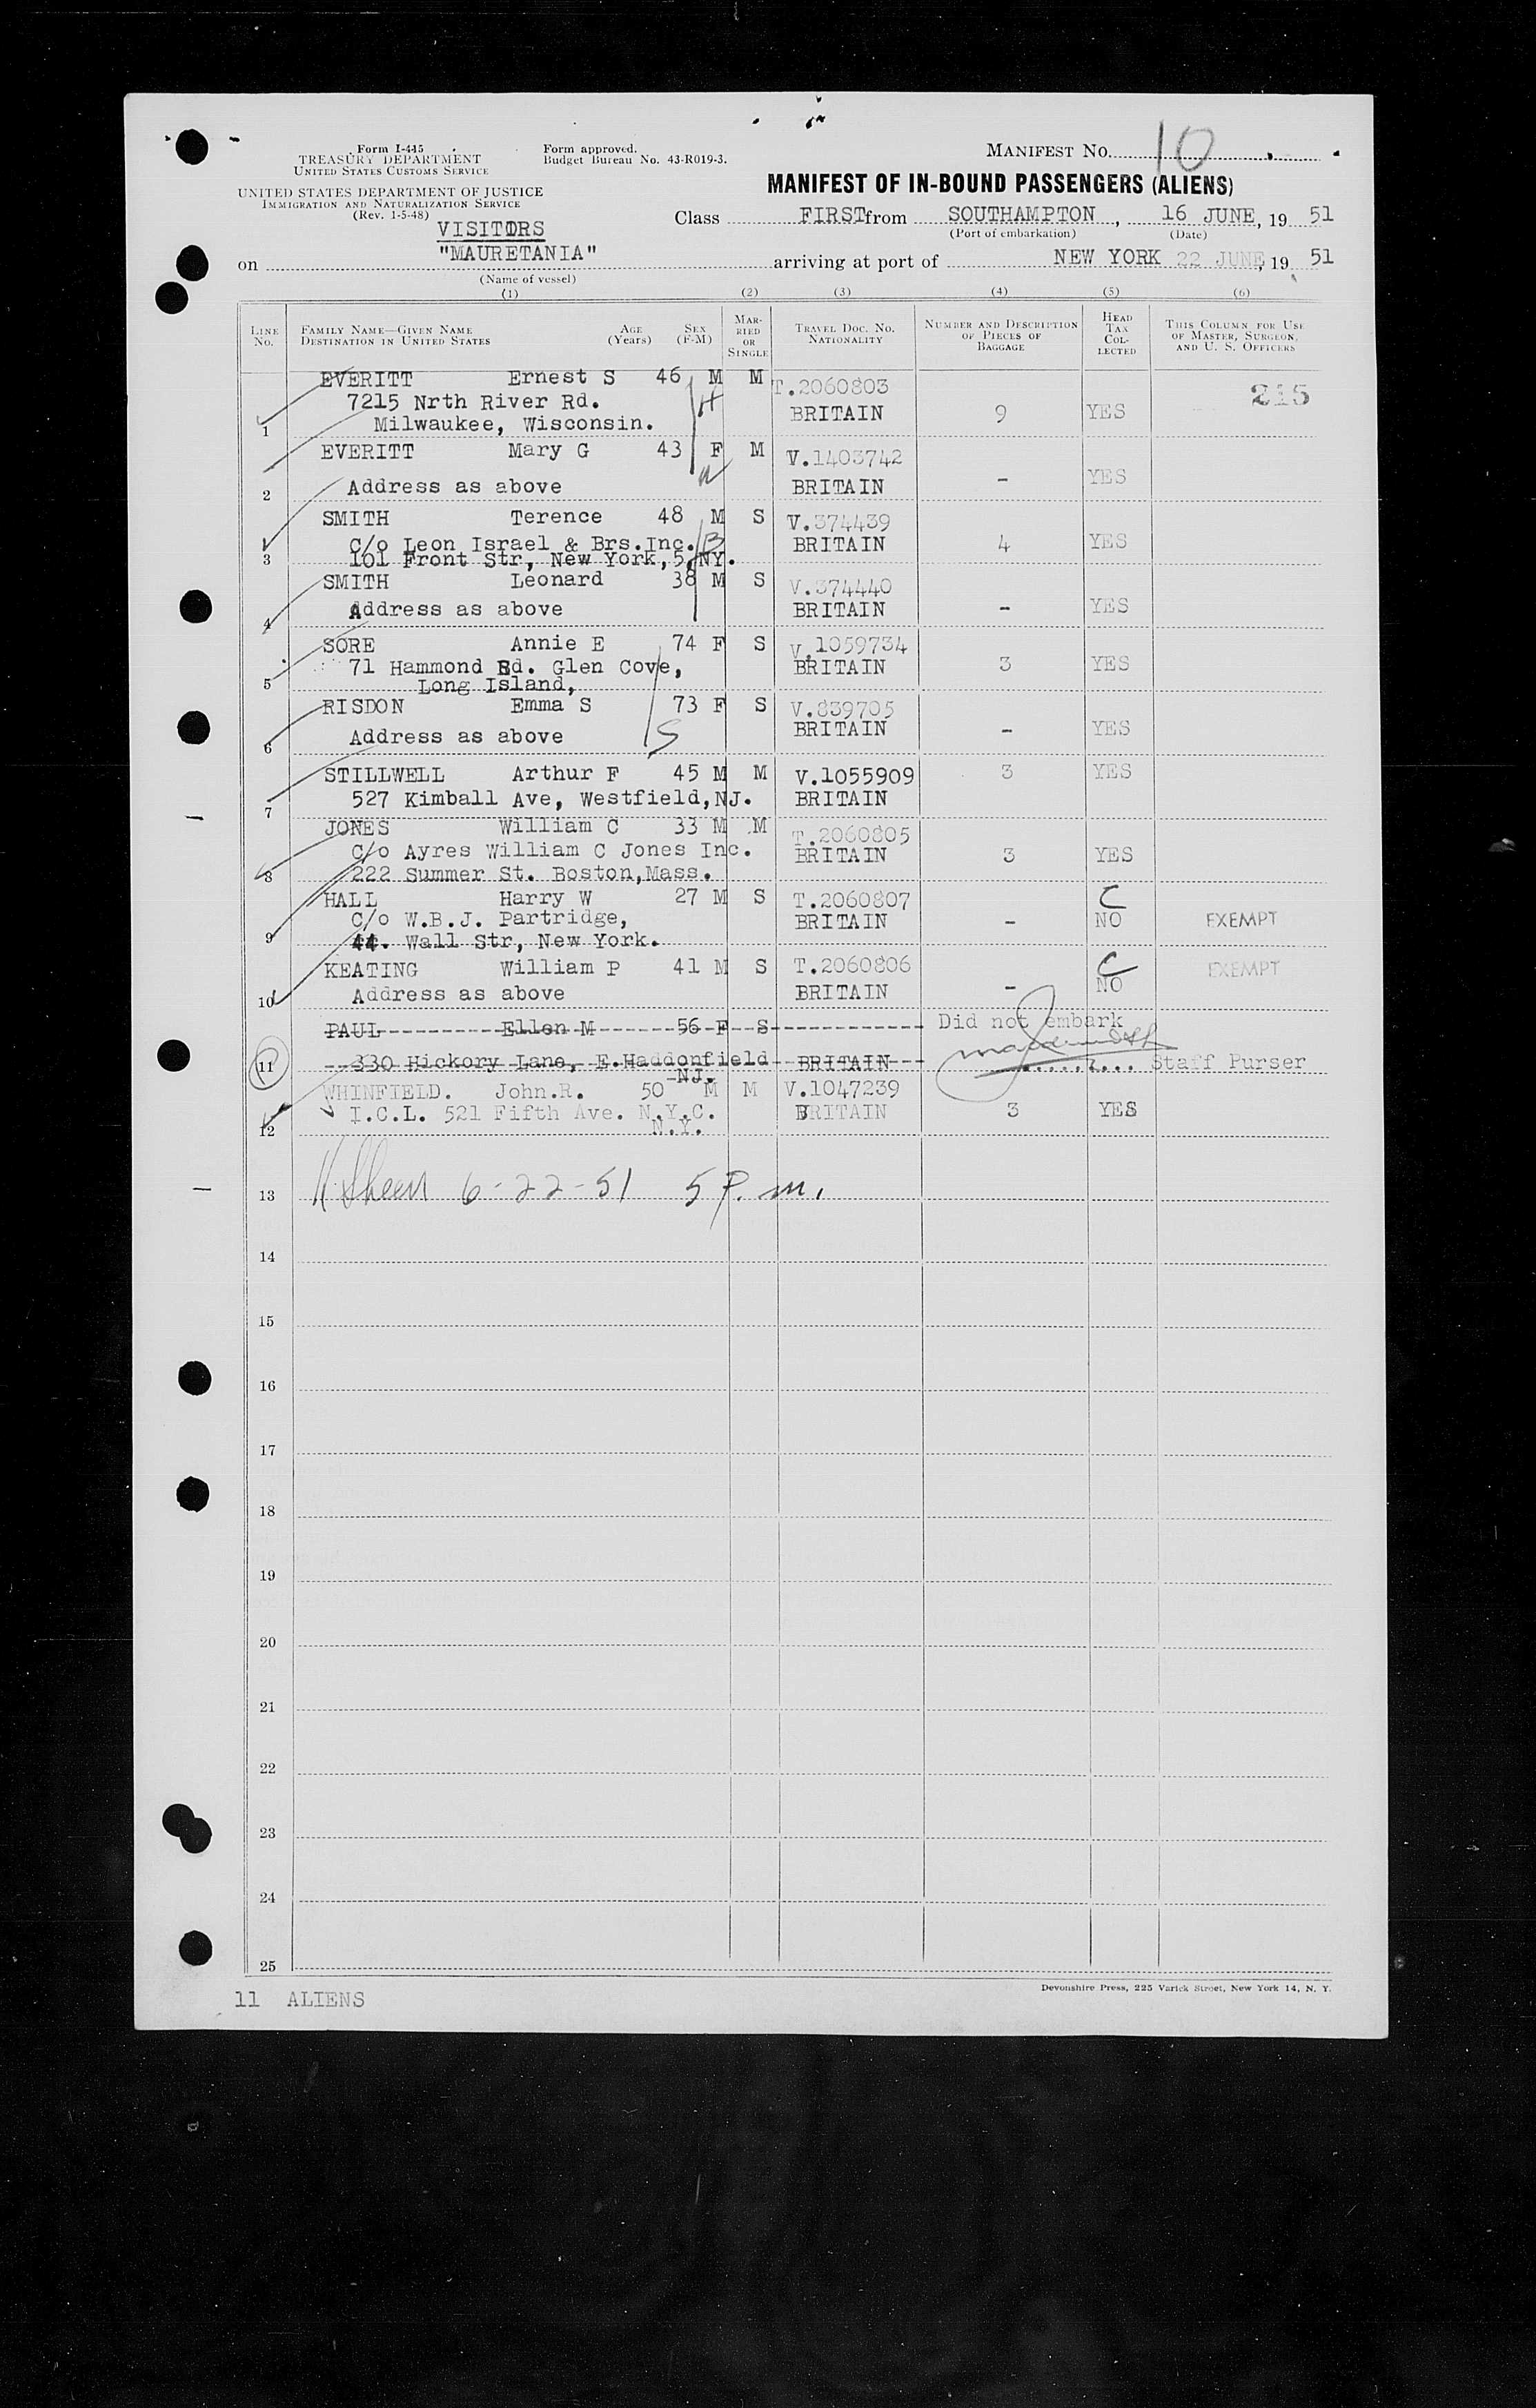 Form I-445
TREASURY DEPARTMENT
UNITED STATES CUSTOMS SERVICE
Form approved.
Budget Bureau No. 43-R019-3.
MANIFEST No. 10
UNITED STATES DEPARTMENT OF JUSTICE
IMMIGRATION AND NATURALIZATION SERVICE
(Rev. 1-5-48)
MANIFEST OF IN-BOUND PASSENGERS (ALIENS)
VISITORS
Class FIRST from SOUTHAMPTON, 16 JUNE, 19 51
(Port of embarkation) (Date)
on "MAURETANIA" arriving at port of NEW YORK 22 JUNE, 19 51
(Name of vessel)
(1) (2) (3) (4) (5) (6)
LINE No. FAMILY NAME—GIVEN NAME DESTINATION IN UNITED STATES AGE (Years) SEX (F-M) MARRIED OR SINGLE TRAVEL DOC. NO. NATIONALITY NUMBER AND DESCRIPTION OF PIECES OF BAGGAGE HEAD TAX COLLECTED THIS COLUMN FOR USE OF MASTER, SURGEON, AND U. S. OFFICERS
EVERITT Ernest S 46 M M T.2060803 215
7215 Nrth River Rd. H BRITAIN 9 YES
1 Milwaukee, Wisconsin.
EVERITT Mary G 43 F M V.1403742
2 Address as above BRITAIN - YES
SMITH Terence 48 M S V.374439
C/o Leon Israel & Brs.Inc. B BRITAIN 4 YES
3 101 Front Str, New York,5,NY.
SMITH Leonard 38 M S V.374440
4 Address as above BRITAIN - YES
SORE Annie E 74 F S V.1059734
71 Hammond Rd. Glen Cove, BRITAIN 3 YES
5 Long Island,
RISDON Emma S 73 F S V.839705
6 Address as above S BRITAIN - YES
STILLWELL Arthur F 45 M M V.1055909 3 YES
7 527 Kimball Ave, Westfield,NJ. BRITAIN
JONES William C 33 M M T.2060805
C/o Ayres William C Jones Inc. BRITAIN 3 YES
8 222 Summer St. Boston,Mass.
HALL Harry W 27 M S T.2060807 C
C/o W.B.J. Partridge, BRITAIN - NO EXEMPT
9 44. Wall Str, New York.
KEATING William P 41 M S T.2060806 C EXEMPT
10 Address as above BRITAIN - NO
PAUL Ellen M 56 F S Did not embark
11 330 Hickory Lane, E.Haddonfield BRITAIN Staff Purser
NJ.
WHINFIELD. John.R. 50 M M V.1047239
I.C.L. 521 Fifth Ave. N.Y.C. BRITAIN 3 YES
12 N.Y.
13 Sheen 6-22-51 5 P.m.
14
15
16
17
18
19
20
21
22
23
24
25
11 ALIENS
Devonshire Press, 225 Varick Street, New York 14, N. Y.